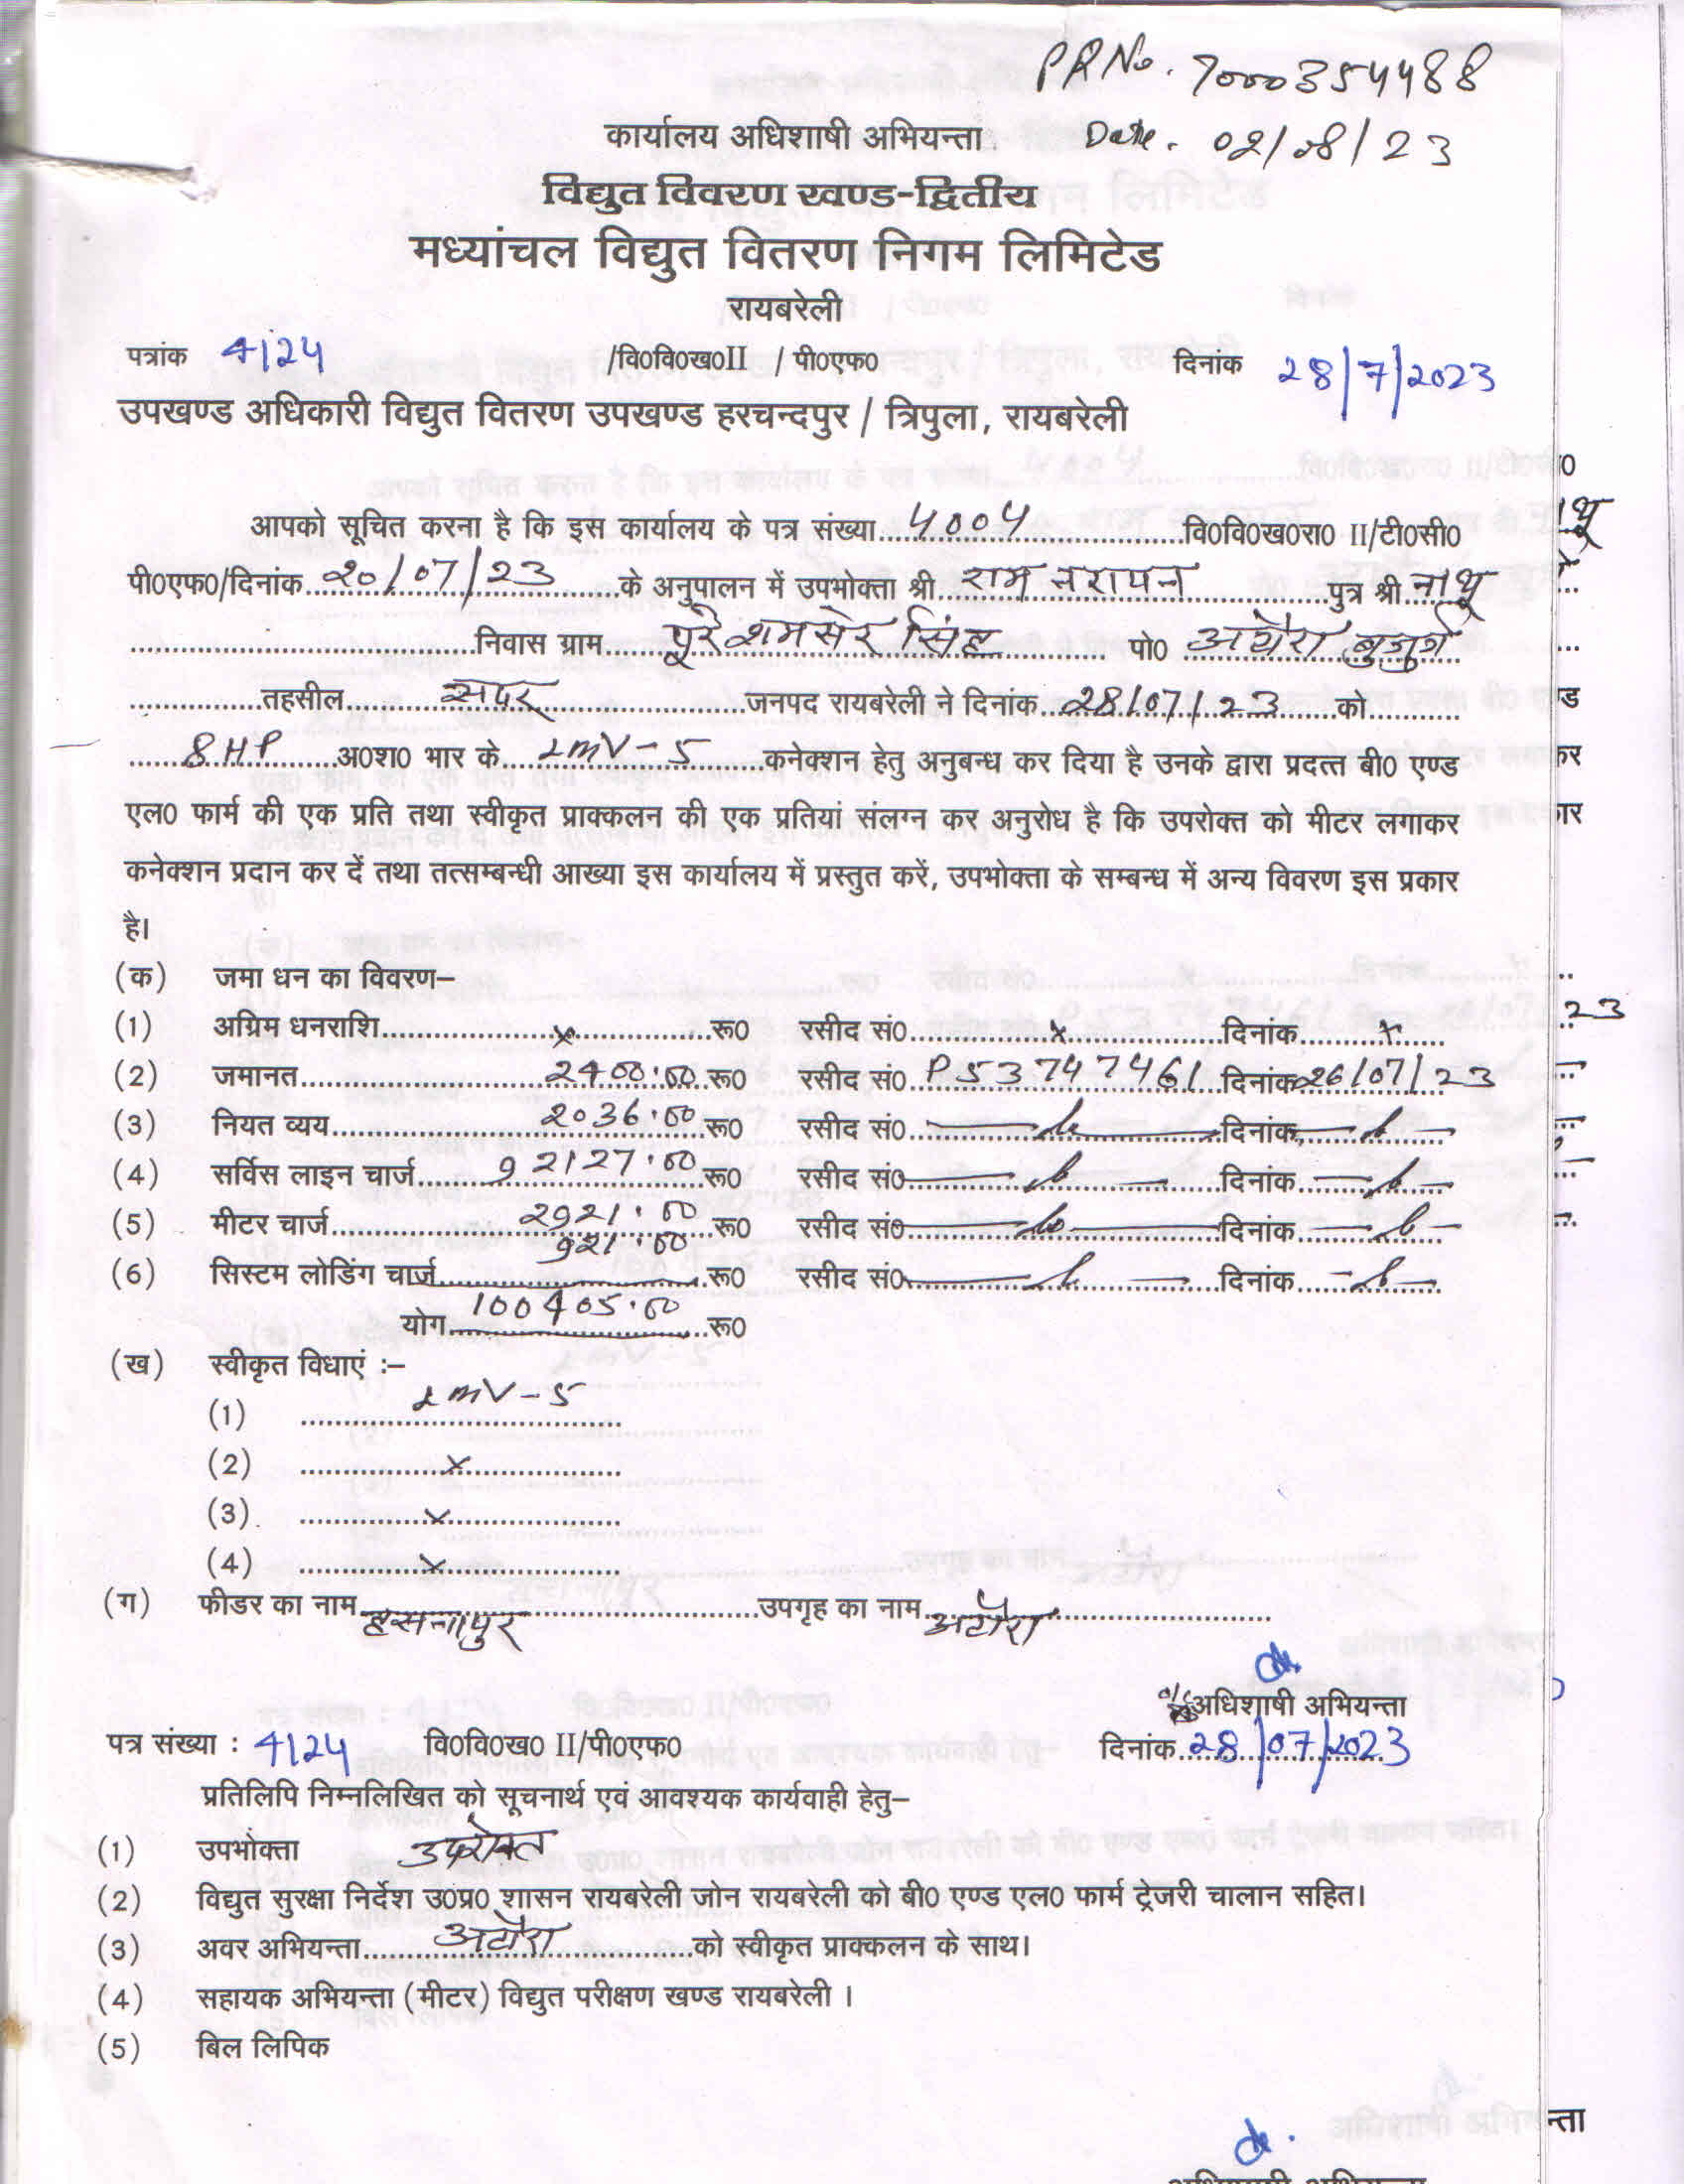 PR No. 7000354488
कार्यालय अधिशाषी अभियन्ता
Date. 02/08/23
विद्युत विवरण खण्ड-द्वितीय
मध्यांचल विद्युत वितरण निगम लिमिटेड
रायबरेली
पत्रांक 4124 /वि0वि0ख0II / पी0एफ0 दिनांक 28/7/2023
उपखण्ड अधिकारी विद्युत वितरण उपखण्ड हरचन्दपुर / त्रिपुला, रायबरेली
आपको सूचित करना है कि इस कार्यालय के पत्र संख्या....4004....वि0वि0ख0रा0 II/टी0सी0
पी0एफ0/दिनांक..20/07/23....के अनुपालन में उपभोक्ता श्री..राम नरायन....पुत्र श्री..नाथू
....निवास ग्राम....पूरे शमसेर सिंह.... पो0 अटौरा बुजुर्ग
....तहसील....सदर....जनपद रायबरेली ने दिनांक..28/07/23....को....
....8 HP....अ0श0 भार के..LMV-5....कनेक्शन हेतु अनुबन्ध कर दिया है उनके द्वारा प्रदत्त बी0 एण्ड
एल0 फार्म की एक प्रति तथा स्वीकृत प्राक्कलन की एक प्रतियां संलग्न कर अनुरोध है कि उपरोक्त को मीटर लगाकर
कनेक्शन प्रदान कर दें तथा तत्सम्बन्धी आख्या इस कार्यालय में प्रस्तुत करें, उपभोक्ता के सम्बन्ध में अन्य विवरण इस प्रकार
है।
(क) जमा धन का विवरण–
(1) अग्रिम धनराशि....x....रू0 रसीद सं0....x....दिनांक....x....
(2) जमानत....2400.00..रू0 रसीद सं0. P537474761 दिनांक 26/07/23
(3) नियत व्यय....2036.00 रू0 रसीद सं0....दिनांक....
(4) सर्विस लाइन चार्ज....92127.00 रू0 रसीद सं0....दिनांक....
(5) मीटर चार्ज....2921.00 रू0 रसीद सं0....दिनांक....
(6) सिस्टम लोडिंग चार्ज....921.00 रू0 रसीद सं0....दिनांक....
योग..100405.00 रू0
(ख) स्वीकृत विधाएं :–
(1) LMV-5
(2) ....x....
(3) ....x....
(4) ....x....
(ग) फीडर का नाम..हसनापुर....उपगृह का नाम..अटौरा....
अधिशाषी अभियन्ता
पत्र संख्या : 4124 वि0वि0ख0 II/पी0एफ0 दिनांक..28/07/2023
प्रतिलिपि निम्नलिखित को सूचनार्थ एवं आवश्यक कार्यवाही हेतु–
(1) उपभोक्ता उपरोक्त
(2) विद्युत सुरक्षा निर्देश उ0प्र0 शासन रायबरेली जोन रायबरेली को बी0 एण्ड एल0 फार्म ट्रेजरी चालान सहित।
(3) अवर अभियन्ता....अटौरा....को स्वीकृत प्राक्कलन के साथ।
(4) सहायक अभियन्ता (मीटर) विद्युत परीक्षण खण्ड रायबरेली ।
(5) बिल लिपिक
अधिशाषी अभियन्ता